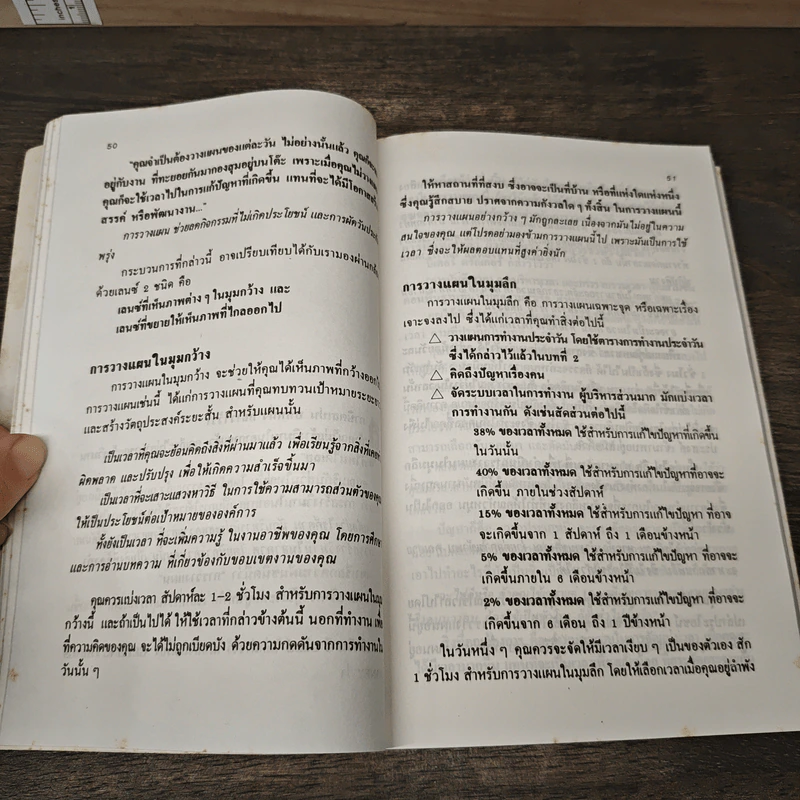 inches
1
50
"คุณจำเป็นต้องวางแผนของแต่ละวัน ไม่อย่างนั้นแล้ว
อยู่กับงาน ที่ทะยอยกันมากองสุมอยู่บนโต๊ะ เพราะเมื่อคุณไม่
คุณก็จะใช้เวลาไปในการแก้ปัญหาที่เกิดขึ้น แทนที่จะได้มีโอกาส
สรรค์ หรือพัฒนางาน..."
การวางแผน ช่วยลดกิจกรรมที่ไม่เกิดประโยชน์ และการผัดวัน
พรุ่ง
กระบวนการที่กล่าวนี้ อาจเปรียบเทียบได้กับเรามองผ่าน
ด้วยเลนซ์ 2 ชนิด คือ
เลนซ์ที่เห็นภาพต่าง ๆ ในมุมกว้าง และ
เลนซ์ที่ขยายให้เห็นภาพที่ไกลออกไป
การวางแผนในมุมกว้าง
การวางแผนในมุมกว้าง จะช่วยให้คุณได้เห็นภาพที่กว้างออก
การวางแผนเช่นนี้ ได้แก่การวางแผนที่คุณทบทวนเป้าหมายระยะ
และสร้างวัตถุประสงค์ระยะสั้น สำหรับแผนนั้น
เป็นเวลาที่คุณจะย้อนคิดถึงสิ่งที่ผ่านมาแล้ว เพื่อเรียนรู้จากสิ่งที่
ผิดพลาด และปรับปรุง เพื่อให้เกิดความสำเร็จขึ้นมา
เป็นเวลาที่จะเสาะแสวงหาวิธี ในการใช้ความสามารถส่วนตัวของ
ให้เป็นประโยชน์ต่อเป้าหมายขององค์การ
ทั้งยังเป็นเวลา ที่จะเพิ่มความรู้ ในงานอาชีพของคุณ โดยการศึกษา
และการอ่านบทความ ที่เกี่ยวข้องกับขอบเขตงานของคุณ
คุณควรแบ่งเวลา สัปดาห์ละ 1-2 ชั่วโมง สำหรับการวางแผนในมุม
กว้างนี้ และถ้าเป็นไปได้ ให้ใช้เวลาที่กล่าวข้างต้นนี้ นอกที่ทำงาน เพื่อ
ที่ความคิดของคุณ จะได้ไม่ถูกเบียดบัง ด้วยความกดดันจากการทำงานใน
วันนั้น ๆ
51
ให้หาสถานที่ที่สงบ ซึ่งอาจจะเป็นที่บ้าน หรือที่แห่งใดแห่งหนึ่ง
ซึ่งคุณรู้สึกสบาย ปราศจากความกังวลใด ๆ ทั้งสิ้น ในการวางแผนนี้
การวางแผนอย่างกว้าง ๆ มักถูกละเลย เนื่องจากมันไม่อยู่ในความ
สนใจของคุณ แต่โปรดอย่ามองข้ามการวางแผนนี้ไป เพราะมันเป็นการใช้
เวลา ซึ่งจะให้ผลตอบแทนที่สูงค่ายิ่งนัก
การวางแผนในมุมลึก
การวางแผนในมุมลึก คือ การวางแผนเฉพาะจุด หรือเฉพาะเรื่อง
เจาะจงลงไป ซึ่งได้แก่เวลาที่คุณทำสิ่งต่อไปนี้
△ วางแผนการทำงานประจำวัน โดยใช้ตารางการทำงานประจำวัน
ซึ่งได้กล่าวไว้แล้วในบทที่ 2
△ คิดถึงปัญหาเรื่องคน
△ จัดระบบเวลาในการทำงาน ผู้บริหารส่วนมาก มักแบ่งเวลา
การทำงานกัน ดังเช่นสัดส่วนต่อไปนี้
38% ของเวลาทั้งหมด ใช้สำหรับการแก้ไขปัญหาที่เกิดขึ้น
ในวันนั้น
40% ของเวลาทั้งหมด ใช้สำหรับการแก้ไขปัญหาที่อาจจะ
เกิดขึ้น ภายในช่วงสัปดาห์
15% ของเวลาทั้งหมด ใช้สำหรับการแก้ไขปัญหา ที่อาจ
จะเกิดขึ้นจาก 1 สัปดาห์ ถึง 1 เดือนข้างหน้า
5% ของเวลาทั้งหมด ใช้สำหรับการแก้ไขปัญหา ที่อาจจะ
เกิดขึ้นภายใน 6 เดือนข้างหน้า
2% ของเวลาทั้งหมด ใช้สำหรับการแก้ไขปัญหา ที่อาจจะ
เกิดขึ้นจาก 6 เดือน ถึง 1 ปีข้างหน้า
ในวันหนึ่ง ๆ คุณควรจะจัดให้มีเวลาเงียบ ๆ เป็นของตัวเอง สัก
1 ชั่วโมง สำหรับการวางแผนในมุมลึก โดยให้เลือกเวลาเมื่อคุณอยู่ลำพัง